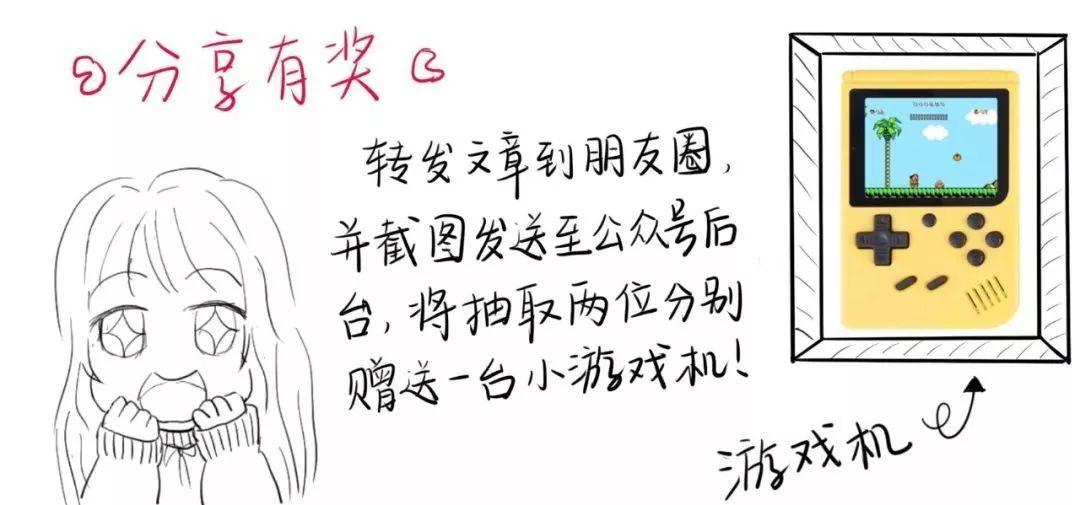 分享有奖
转发文章到朋友圈,
并截图发送至公众号后
台,将抽取两位分别
赠送一台小游戏机!
游戏机